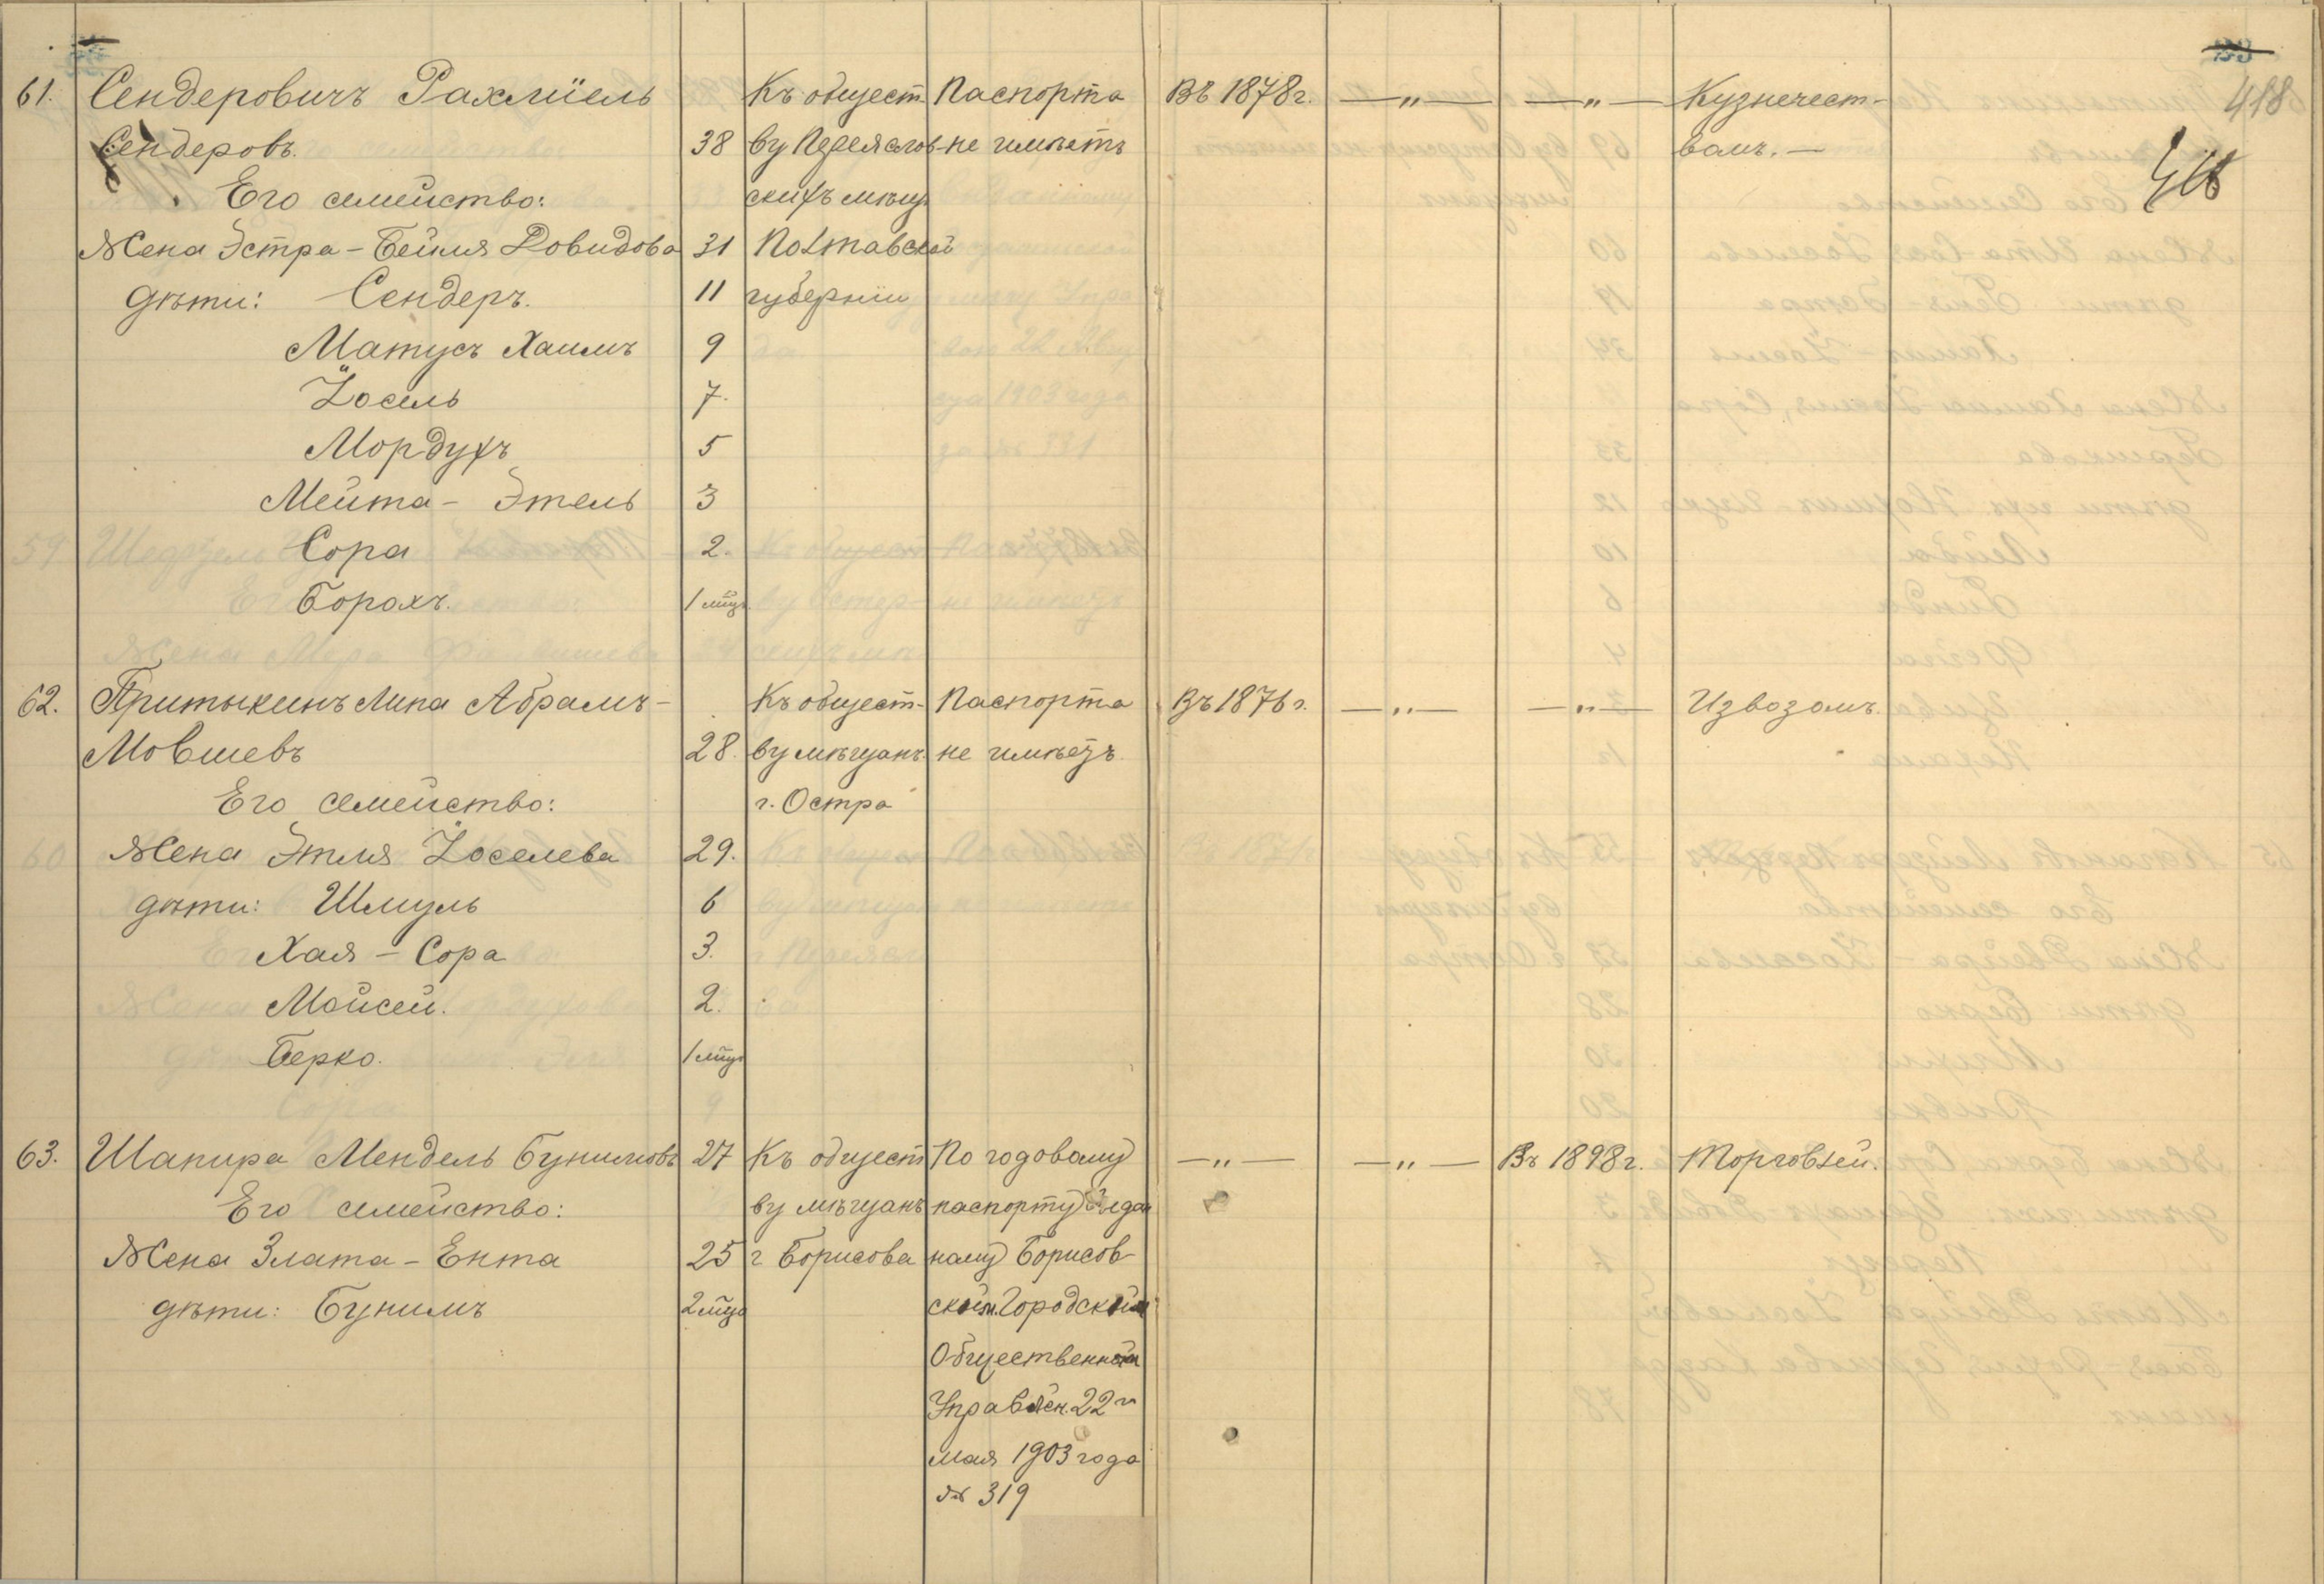 418
418
61. Сендеровичъ Рахміель Къ общест- Паспорта Въ 1878 г. —„— —„— Кузнечест-
Сендеровъ. 38 ву Переяслов- не имѣетъ вомъ.—
Его семейство: скихъ мѣщ.
Жена Эстра-Бейля Довидова 31 Полтавской
дѣти: Сендеръ. 11 губерніи
Матусъ Хаимъ 9
Іосель 7.
Мордухъ 5
Мейта-Этель 3
Сора 2.
Борохъ. 1 мѣц.
62. Притыкинъ Липа Абрамъ- Къ общест- Паспорта Въ 1876 г. —„— —„— Извозомъ.
Мовшевъ 28. ву мѣщанъ не имѣетъ.
Его семейство: г. Остра
Жена Этля Іоселева 29.
дѣти: Шмуль 6
Хая-Сора 3.
Мойсей. 2.
Берко. 1 мѣц.
63. Шапира Мендель Бунимовъ 27 Къ общест По годовому —„— —„— Въ 1898 г. Торговлей.
Его семейство: ву мѣщанъ паспорту выдан
Жена Злата-Ента 25 г Борисова ному Борисов-
дѣти: Бунимъ 2 мѣц. ским. Городским
Общественным
Управлен. 22 го
мая 1903 года
№ 319